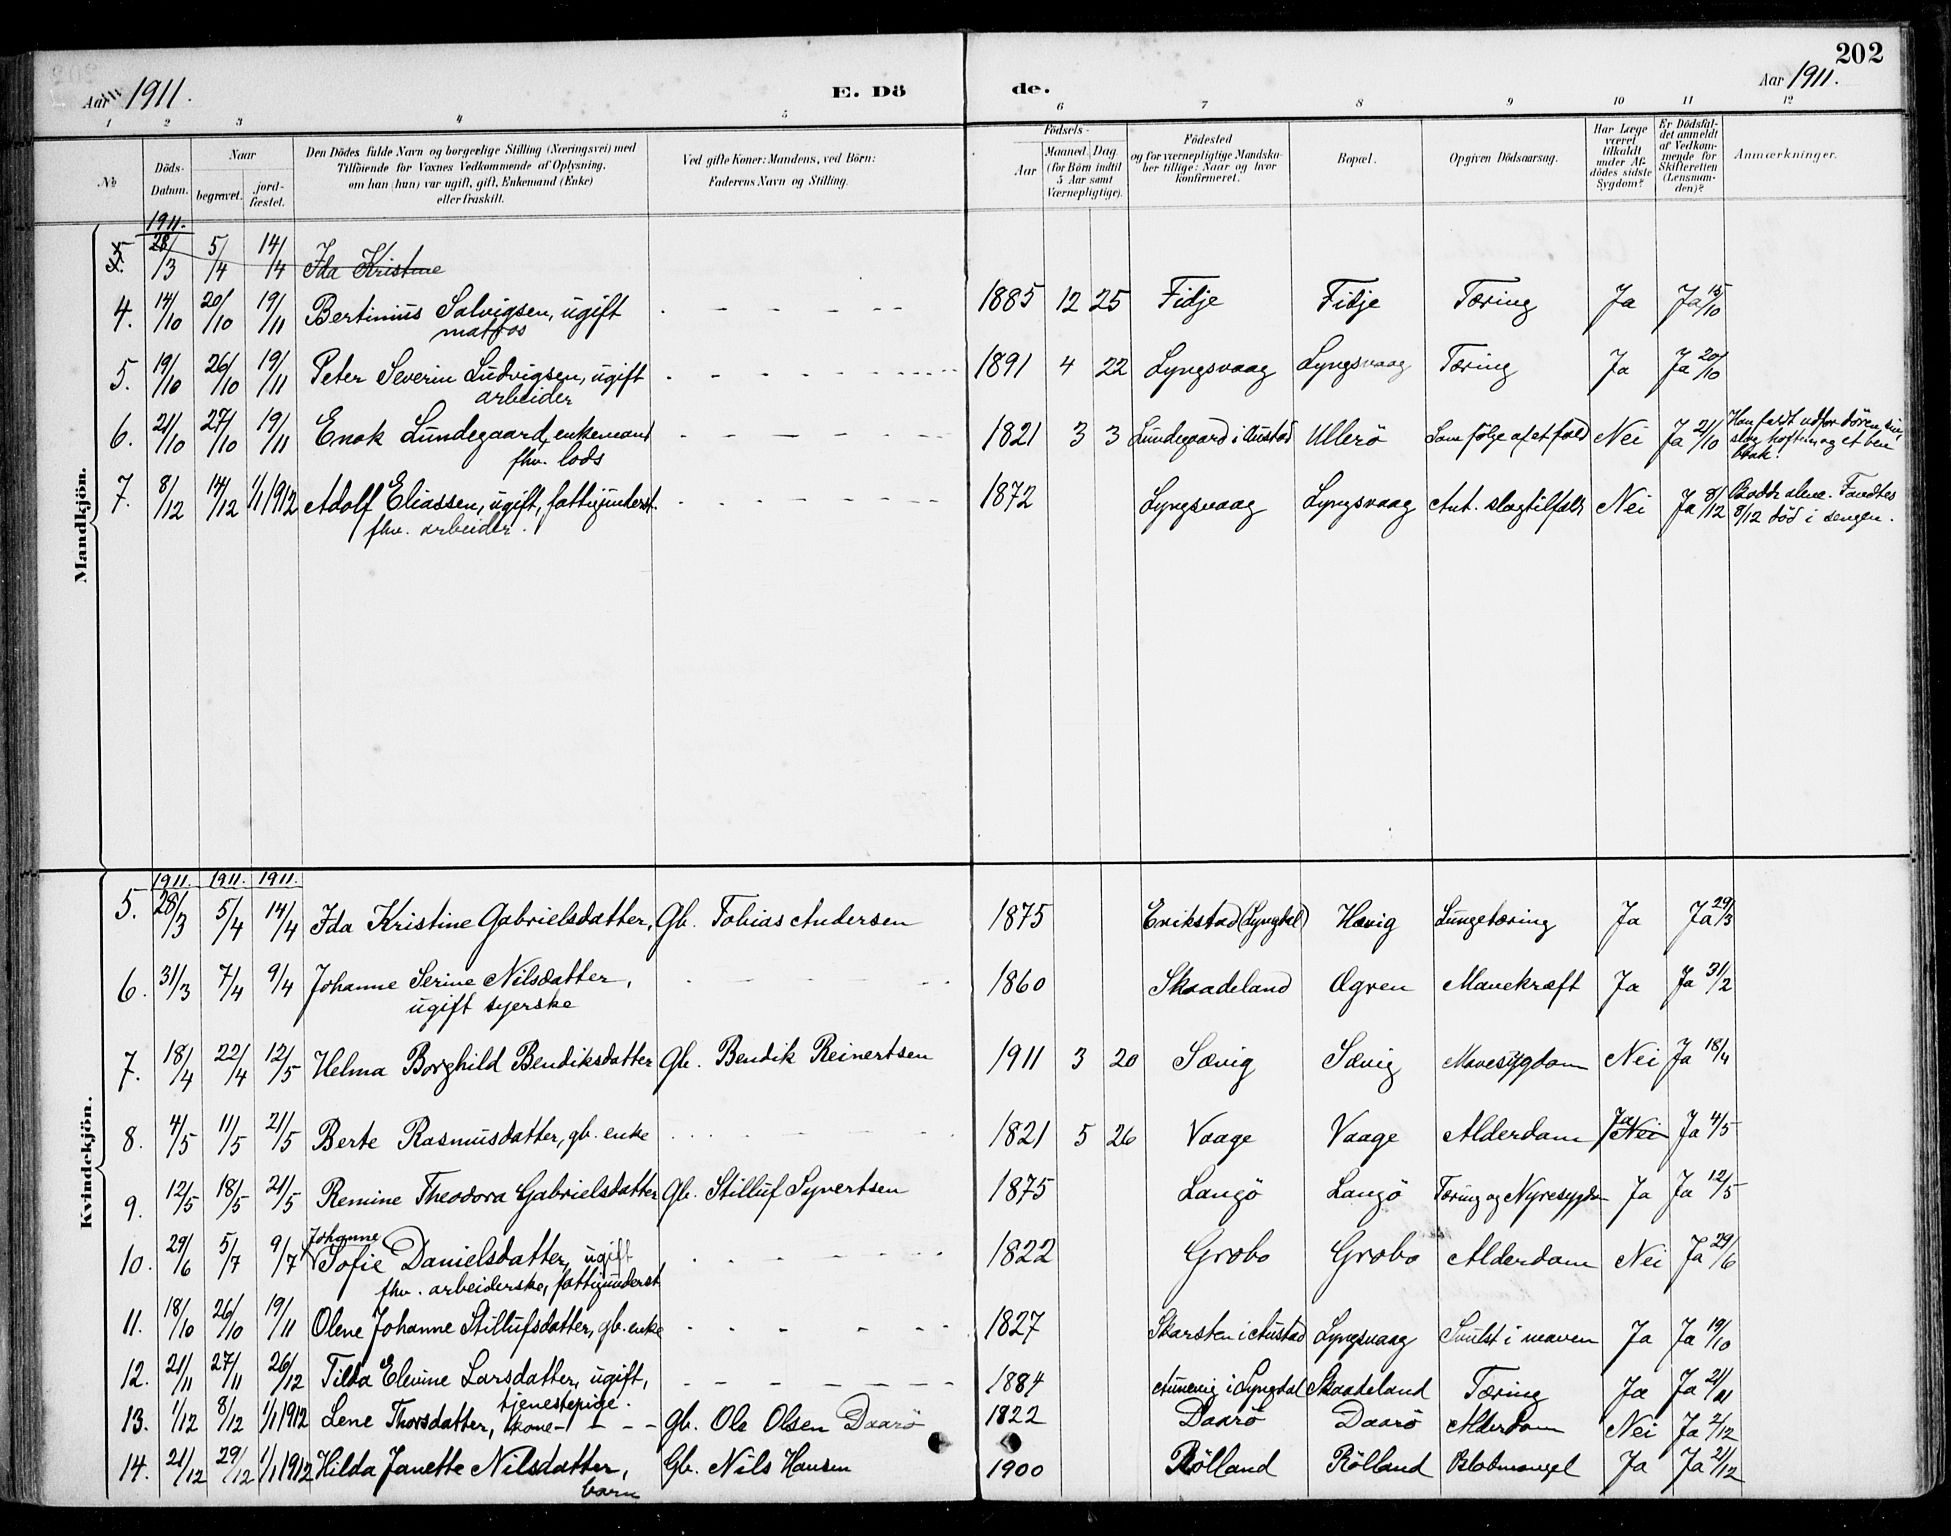 202
Aar 1911. E. Dö de. Aar 1911.
1 2 3 4 5 6 7 8 9 10 11 12
No Döds-Datum. Naar begravet. jord-fæstet. Den Dödes fulde Navn og borgerlige Stilling (Næringsvei) med Tilföiende for Voxnes Vedkommende af Oplysning, om han (hun) var ugift, gift, Enkemand (Enke) eller fraskilt. Ved gifte Koner: Mandens, ved Börn: Faderens Navn og Stilling. Födsels- Aar Maaned. Dag (for Börn indtil 5 Aar samt Værnepligtige). Födested og for værnepligtige Mandska-ber tillige: Naar og hvor konfirmeret. Bopæl. Opgiven Dödsaarsag. Har Læge været tilkaldt under Af-dödes sidste Sygdom? Er Dödsfal-det anmeldt af Vedkom-mende for Skifteretten (Lensman-den)? Anmærkninger.
Mandkjön.
1911.
5. 28/3 5/4 14/4 Ida Kristine
4. 14/10 20/10 19/11 Bertinius Salvigsen, ugift matros 1885 12 25 Fidje Fidje Tæring Ja Ja 15/10
5. 19/10 26/10 19/11 Peter Severin Ludvigsen, ugift arbeider 1891 4 22 Lyngsvaag Lyngsvaag Tæring Ja Ja 20/10
6. 21/10 27/10 19/11 Enok Lundegaard, enkemand fhv. lods 1821 3 3 Lundegaard i Austad Ullerö Som følge af et fald Nei Ja 21/10 Han faldt udfor døren sin, slog hoften og et ben brak.
7. 8/12 14/12 1/1 1912 Adolf Eliassen, ugift, fattigunderst. fhv. arbeider. 1872 Lyngsvaag Lyngsvaag Ant. slagtilfald Nei Ja 8/12 Bodde alene. Fandtes 8/12 död i sengen.
Kvindekjön.
1911. 1911. 1911.
5. 28/3 5/4 14/4 Ida Kristine Gabrielsdatter, Gb. Tobias Andersen 1875 Erikstad (Lyngdal) Hævig Lungetæring Ja Ja 29/3
6. 31/3 7/4 9/4 Johanne Serine Nilsdatter, ugift syerske 1860 Skaadeland Øgren Mavekræft Ja Ja 31/2
7. 18/4 22/4 12/5 Helma Borghild Bendiksdatter Gb. Bendik Reinertsen 1911 3 20 Sævig Sævig Mavesygdom Nei Ja 18/4
8. 4/5 11/5 21/5 Berte Rasmusdatter, gb. enke 1821 5 26 Vaage Vaage Alderdom Ja Nei Ja 4/5
9. 12/5 18/5 21/5 Remine Theodora Gabrielsdatter Gb. Stilluf Syvertsen 1875 Langö Langö Tæring og Nyresygdom Ja Ja 12/5
10. 29/6 5/7 9/7 Johanne Sofie Danielsdatter, ugift fhv. arbeiderske, fattigunderst 1822 Grobo Grobo Alderdom Nei Ja 29/6
11. 18/10 26/10 19/11 Olene Johanne Stillufsdatter, gb. enke 1827 Skarsten i Austad Lyngsvaag Svulst i maven Ja Ja 19/10
12. 21/11 27/11 26/12 Tilda Elevine Larsdatter, ugift, tjenestepige. 1884 Aunevig i Lyngdal Skaadeland Tæring Ja Ja 21/11
13. 1/12 8/12 1/1 1912 Lene Thorsdatter, kone Gb. Ole Olsen Daarö 1822 Daarö Daarö Alderdom Nei Ja 2/12
14. 21/12 29/12 1/1 1912 Hilda Janette Nilsdatter, barn Gb. Nils Hansen 1900 Rölland Rölland Blodmangel Ja Ja 21/12